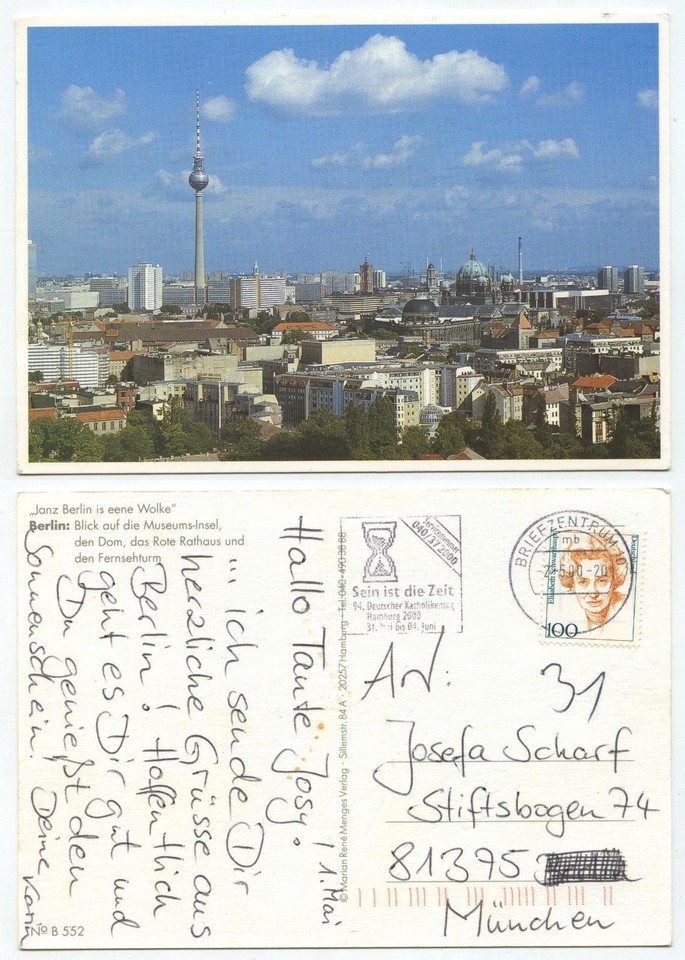 „Janz Berlin is eene Wolke“
Berlin: Blick auf die Museums-Insel,
den Dom, das Rote Rathaus und
den Fernsehturm
Hallo Tante Josy!
1. Mai
... ich sende Dir
herzliche Grüsse aus
Berlin! Hoffentlich
geht es Dir gut und
Du genießt den
Sonnenschein. Deine
Karin
No B 552
© Marian René Menges Verlag · Sillemstr. 84 A · 20257 Hamburg · Tel. 040-490 38 88
Servicenummer
040/37 2000
Sein ist die Zeit
94. Deutscher Katholikentag
Hamburg 2000
31. Mai bis 04. Juni
BRIEFZENTRUM 10
mb
.00-20
Deutschland
Elisabeth Schwarzhaupt
100
An:
31
Josefa Scharf
Stiftsbogen 74
81375
München